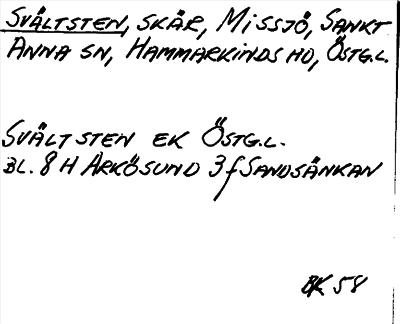 SVÄLTSTEN, SKÄR, MISSJÖ, SANKT
ANNA SN, HAMMARKINDS HD, ÖSTG.L.
SVÄLTSTEN EK ÖSTG.L.
BL. 8 H ARKÖSUND 3f SANDSÄNKAN
BK 58